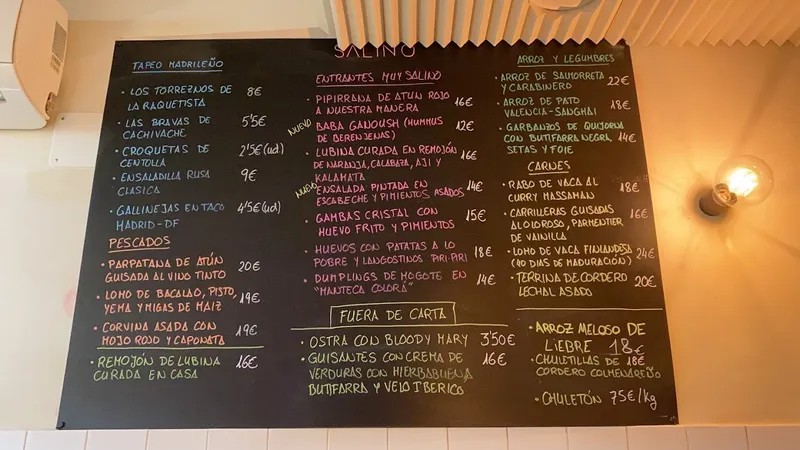 SALINO
TAPEO MADRILEÑO
· LOS TORREZNOS DE 8€
LA RAQUETISTA
· LAS BRAVAS DE 5'5€
CACHIVACHE
· CROQUETAS DE 2'5€ (ud.)
CENTOLLA
· ENSALADILLA RUSA 9€
CLASICA
· GALLINEJAS EN TACO 4'5€ (ud)
MADRID-DF
PESCADOS
· PARPATANA DE ATÚN 20€
GUISADA AL VINO TINTO
· LOMO DE BACALAO, PISTO, 19€
YEMA Y MIGAS DE MAIZ
· CORVINA ASADA CON 19€
MOJO ROJO Y CAPONATA
· REMOJÓN DE LUBINA 16€
CURADA EN CASA
ENTRANTES MUY SALINO
· PIPIRRANA DE ATUN ROJO 16€
A NUESTRA MANERA
NUEVO
· BABA GANOUSH (HUMMUS 12€
DE BERENJENAS)
· LUBINA CURADA EN REMOJÓN 16€
DE NARANJA, CALABAZA, AJI Y
KALAMATA
NUEVO
· ENSALADA PINTADA EN 14€
ESCABECHE Y PIMIENTOS ASADOS
· GAMBAS CRISTAL CON 15€
HUEVO FRITO Y PIMIENTOS
· HUEVOS CON PATATAS A LO 18€
POBRE Y LANGOSTINOS PIRI-PIRI
· DUMPLINGS DE MOGOTE EN 14€
"MANTECA COLORÁ"
FUERA DE CARTA
· OSTRA CON BLOODY MARY 3'50€
· GUISANTES CON CREMA DE 16€
VERDURAS CON HIERBABUENA
BUTIFARRA Y VELO IBERICO
ARROZ Y LEGUMBRES
· ARROZ DE SALMORRETA 22€
Y CARABINERO
· ARROZ DE PATO 18€
VALENCIA-SANGHAI
· GARBANZOS DE QUIJORNA
CON BUTIFARRA NEGRA, 14€
SETAS Y FOIE
CARNES
· RABO DE VACA AL 18€
CURRY MASSAMAN
· CARRILLERAS GUISADAS 16€
AL OLOROSO, PARMENTIER
DE VAINILLA
· LOMO DE VACA FINLANDESA 24€
(40 DIAS DE MADURACIÓN)
· TERRINA DE CORDERO 20€
LECHAL ASADO
· ARROZ MELOSO DE
LIEBRE 18€
· CHULETILLAS DE 18€
CORDERO COLMENAREÑO
· CHULETÓN 75€/kg